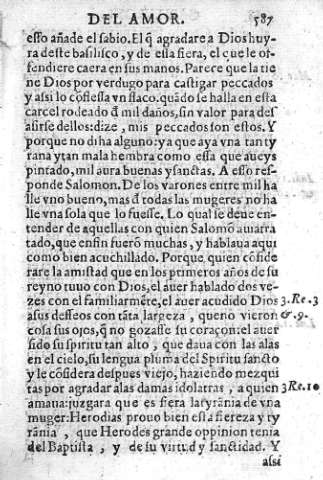 DEL AMOR. 587
esso añade el sabio. El q̃ agradare a Dios huy-
ra deste basilisco, y de essa fiera, el que le of-
fendiere caera en sus manos. Parece que la tie
ne Dios por verdugo para castigar peccados
y assi lo cõfiessa vn flaco. quãdo se halla en esta
carcel rodeado d̃ mil daños, sin valor para des
asirse dellos: dize, mis peccados son estos. Y
porque no diha alguno: ya que aya vna tan ty
rana y tan mala hembra como essa que aueys
pintado, mil aura buenas y sanctas. A esso res-
ponde Salomon. De los varones entre mil ha
lle vno bueno, mas d̃ todas las mugeres no ha
lle vna sola que lo fuesse. Lo qual se deue en-
tender de aquellas con quien Salomõ auia tra
tado, que en fin fuerõ muchas, y hablaua aqui
como bien acuchillado. Porque quien cõside
rare la amistad que en los primeros años de su
reyno tuuo con Dios, el auer hablado dos ve-
zes con el familiarmẽte, el auer acudido Dios 3. Re. 3
a sus desseos con tãta largeza, que no vieron &. 9.
cosa sus ojos, q̃ no gozasse su coraçon: el auer
sido su spiritu tan alto, que daua con las alas
en el cielo, su lengua pluma del Spiritu sancto
y le cõsidera despues viejo, haziendo mezqui
tas por agradar a las damas idolatras, a quien 3. Re. 10
amaua: juzgara que es fiera la tyrãnia de vna
muger: Herodias prouo bien esta fiereza y ty
rãnia, que Herodes grande oppinion tenia
del Baptista, y de su virtud y sanctidad. Y
assi